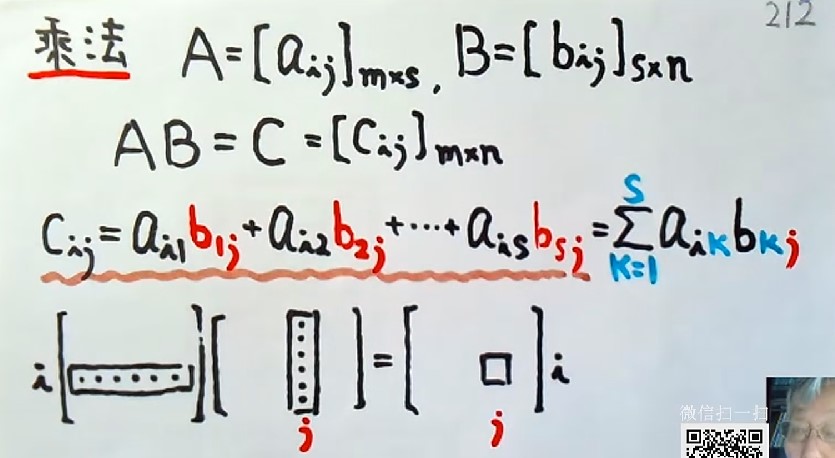 212
乘法 A=[aij]m×s, B=[bij]s×n
AB=C=[Cij]m×n
Cij=ai1b1j+ai2b2j+⋯+aisbsj=∑k=1s aikbkj
i[ ][ ]=[ ]i
j j
微信扫一扫